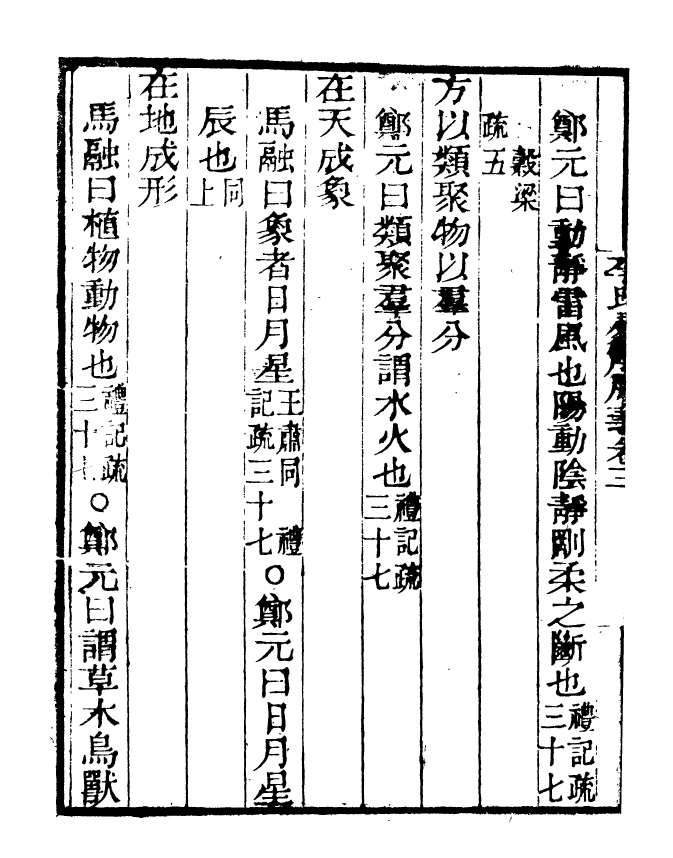 李氏易解賸義卷三
鄭元曰動靜雷風也陽動陰靜剛柔之斷也禮記疏三十七
穀梁疏五
方以類聚物以羣分
鄭元曰類聚羣分謂水火也禮記疏三十七
在天成象
馬融曰象者日月星王肅同 禮記疏三十七○鄭元曰日月星
辰也同上
在地成形
馬融曰植物動物也禮記疏三十七○鄭元曰謂草木鳥獸